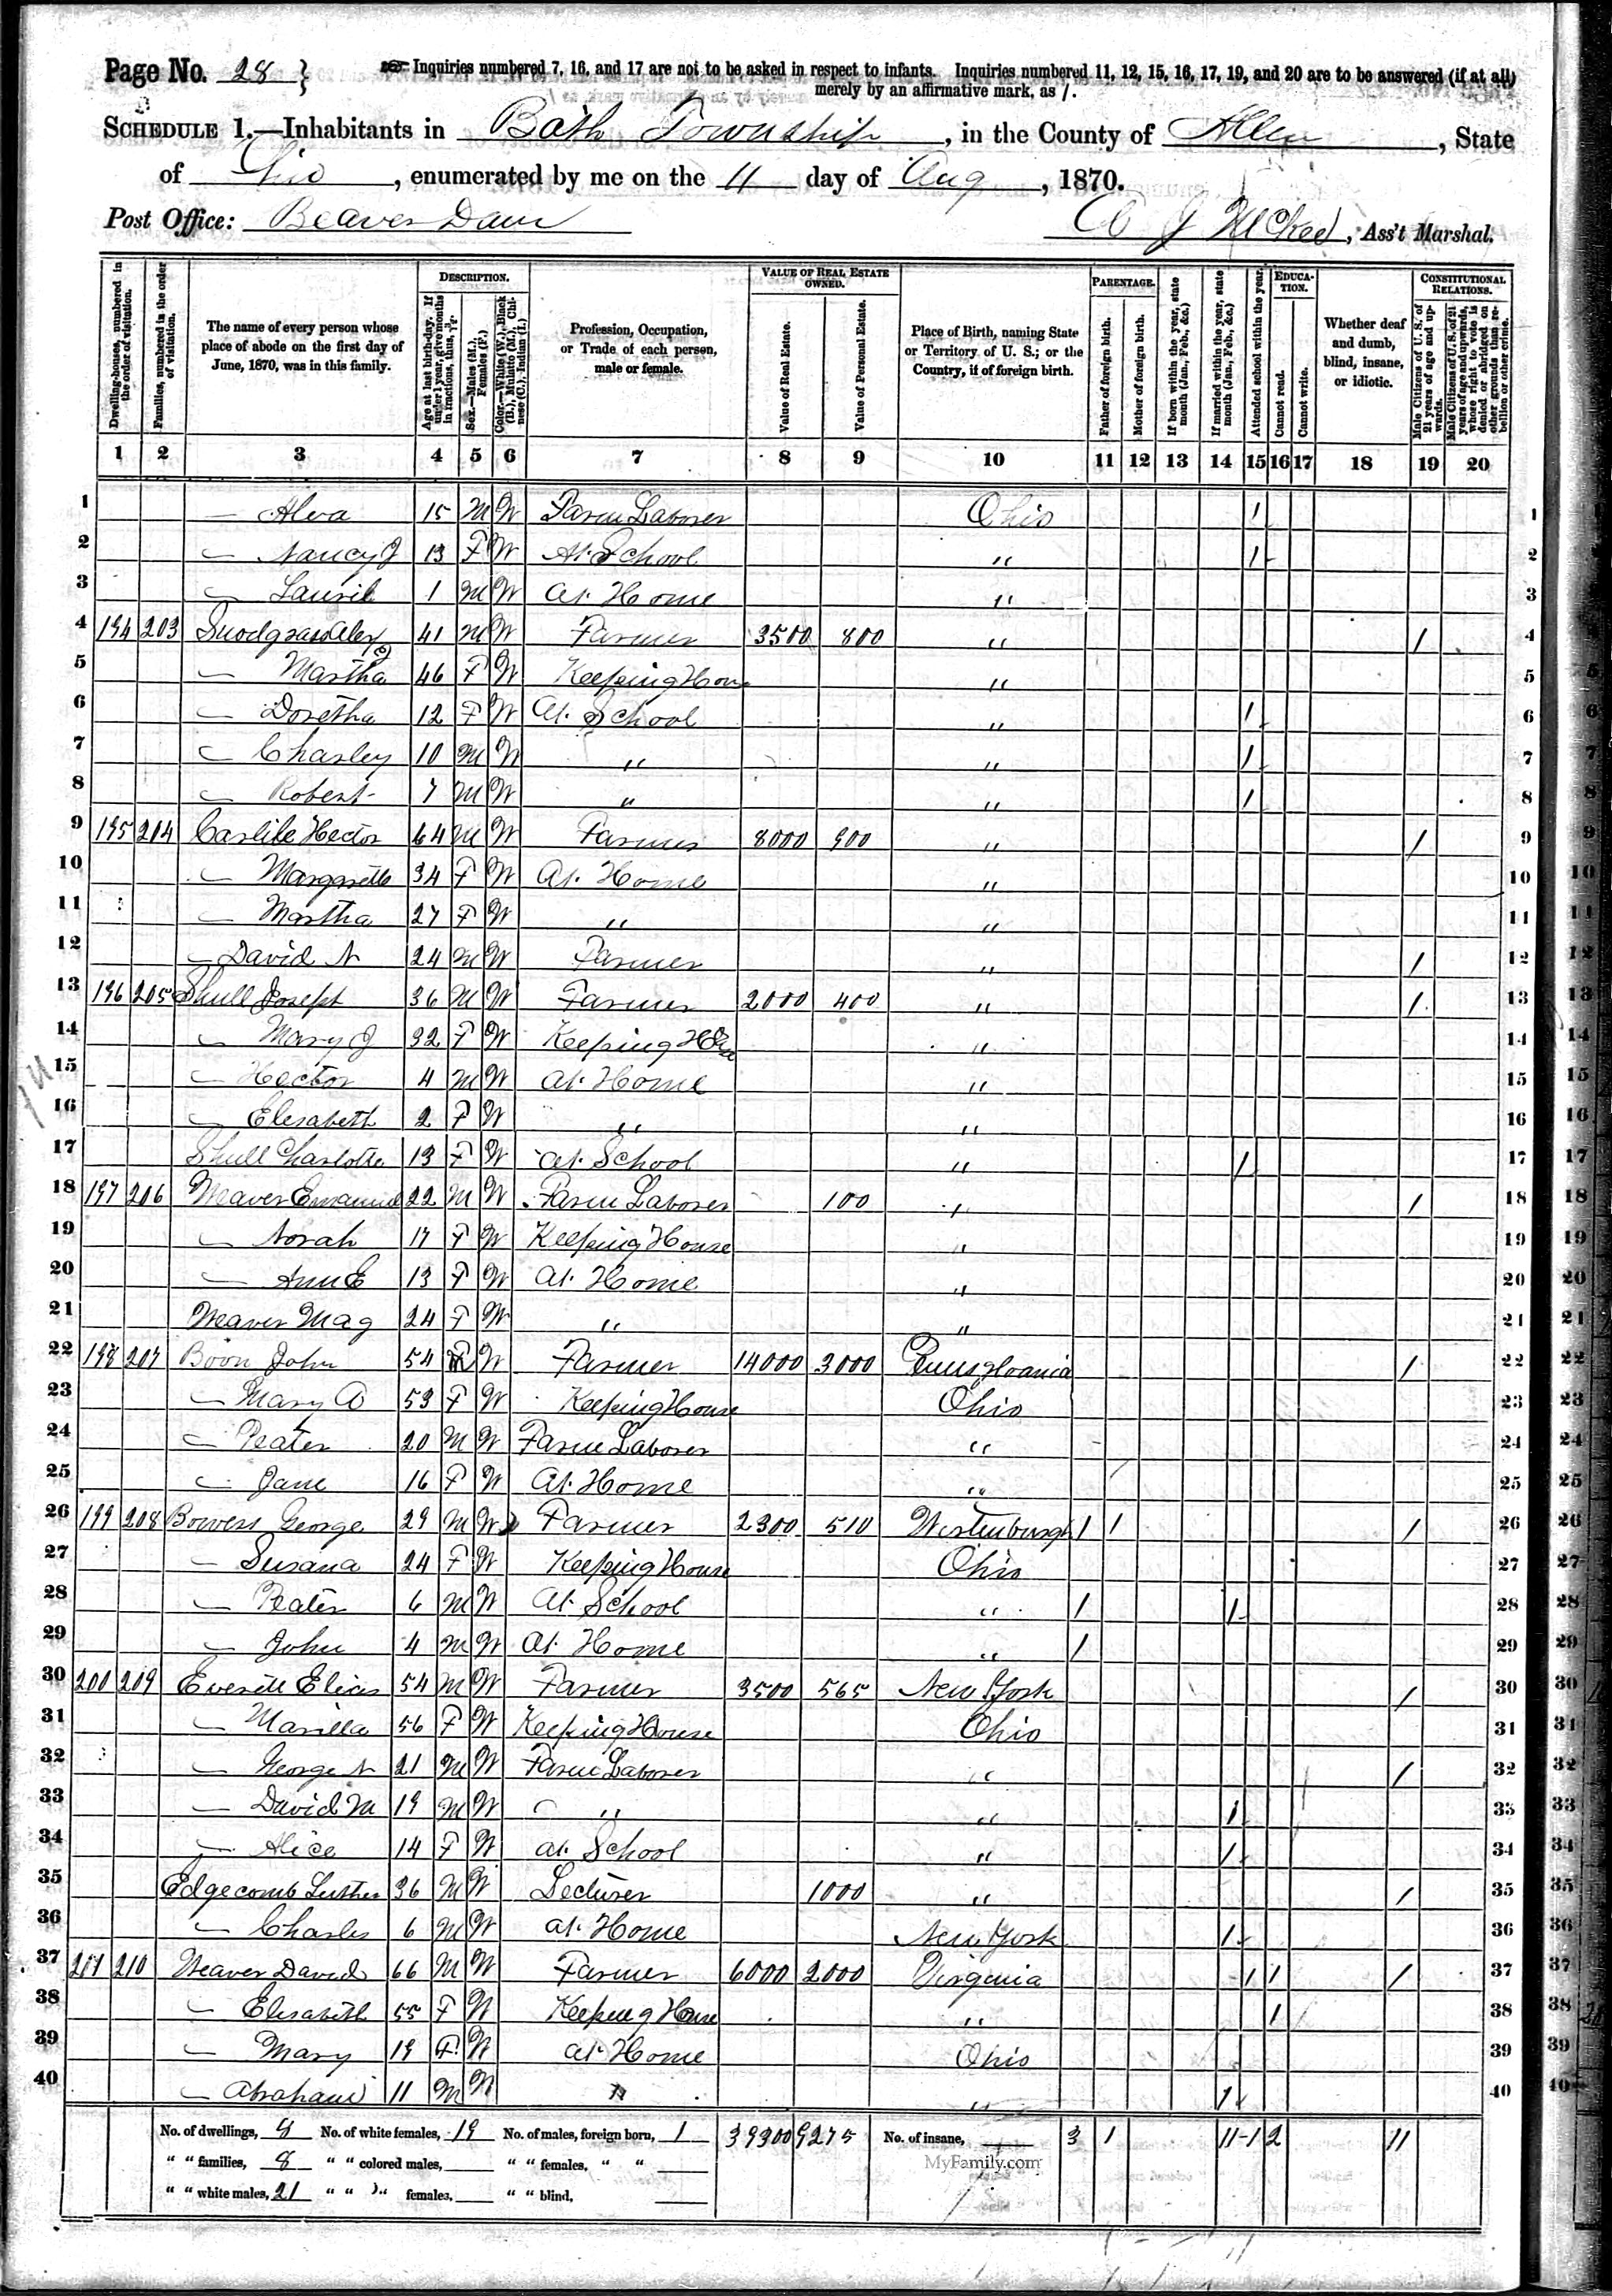 Page No. 28 }
Inquiries numbered 7, 16, and 17 are not to be asked in respect to infants. Inquiries numbered 11, 12, 15, 16, 17, 19, and 20 are to be answered (if at all)
merely by an affirmative mark, as /.
SCHEDULE 1.—Inhabitants in Bath Township, in the County of Allen, State
of Ohio, enumerated by me on the 11 day of Aug, 1870.
Post Office: Beaver Dam
C J McKee, Ass't Marshal.
Dwelling-houses, numbered in the order of visitation.
Families, numbered in the order of visitation.
The name of every person whose place of abode on the first day of June, 1870, was in this family.
DESCRIPTION.
Age at last birth-day. If under 1 year, give months in fractions, thus, 3/12.
Sex.—Males (M.), Females (F.)
Color.—White (W.), Black (B.), Mulatto (M.), Chinese (C.), Indian (I.)
Profession, Occupation, or Trade of each person, male or female.
VALUE OF REAL ESTATE OWNED.
Value of Real Estate.
Value of Personal Estate.
Place of Birth, naming State or Territory of U. S.; or the Country, if of foreign birth.
PARENTAGE.
Father of foreign birth.
Mother of foreign birth.
If born within the year, state month (Jan., Feb., &c.)
If married within the year, state month (Jan., Feb., &c.)
Attended school within the year.
EDUCATION.
Cannot read.
Cannot write.
Whether deaf and dumb, blind, insane, or idiotic.
CONSTITUTIONAL RELATIONS.
Male Citizens of U. S. of 21 years of age and upwards.
Male Citizens of U. S. of 21 years of age and upwards, whose right to vote is denied or abridged on other grounds than rebellion or other crime.
1 2 3 4 5 6 7 8 9 10 11 12 13 14 15 16 17 18 19 20
1 — Alva 15 M W Farm Laborer Ohio / 1
2 — Nancy J 13 F W At School " / 2
3 — 1 M W At Home " 3
4 194 203 Snodgrass Alex 41 M W Farmer 3500 800 " / 4
5 — Martha 46 F W Keeping Hou " 5
6 — Doretha 12 F W At School " / 6
7 — Charley 10 M W " " / 7
8 — Robert 7 M W " " / 8
9 195 204 Carlile Hector 64 M W Farmer 8000 900 " / 9
10 — 34 F W At Home " 10
11 — Martha 27 F W " " 11
12 — David N 24 M W Farmer " / 12
13 196 205 Shull Joseph 36 M W Farmer 2000 400 " / 13
14 — Mary J 32 F W Keeping Hou " 14
15 — Hector 4 M W At Home " 15
16 — Elisabeth 2 F W " " 16
17 Shull Charlotte 13 F W At School " / 17
18 197 206 Weaver Emanuel 22 M W Farm Laborer 100 " / 18
19 — Norah 17 F W Keeping House " 19
20 — Ann E 13 F W At Home " 20
21 Weaver Mag 24 F W " " 21
22 198 207 Boon John 54 M W Farmer 14000 3000 Pennsylvania / 22
23 — Mary A 53 F W Keeping House Ohio 23
24 — Peater 20 M W Farm Laborer " 24
25 — Jane 16 F W At Home " 25
26 199 208 Bowers George 29 M W Farmer 2300 510 / / / 26
27 — Susana 24 F W Keeping House Ohio 27
28 — Peater 6 M W At School " / / 28
29 — John 4 M W At Home " / 29
30 200 209 Everett Elias 54 M W Farmer 3500 565 New York / 30
31 — Marilla 56 F W Keeping House Ohio 31
32 — George N 21 M W Farm Laborer " / 32
33 — David M 19 M W " " / 33
34 — Alice 14 F W At School " / 34
35 Edgecomb Luther 36 M W Lecturer 1000 " / 35
36 — Charles 6 M W At Home New York / 36
37 201 210 Weaver David 66 M W Farmer 6000 2000 Virginia / / / 37
38 — Elisabeth 55 F W Keeping House " / 38
39 — Mary 19 F W At Home Ohio 39
40 — Abraham 11 M W " " / 40
No. of dwellings, 8 No. of white females, 19 No. of males, foreign born, 1 39300 9275 No. of insane, 3 1 11-1 2 11
" " families, 8 " " colored males, " " females, " "
" " white males, 21 " " " females, " " blind,
MyFamily.com